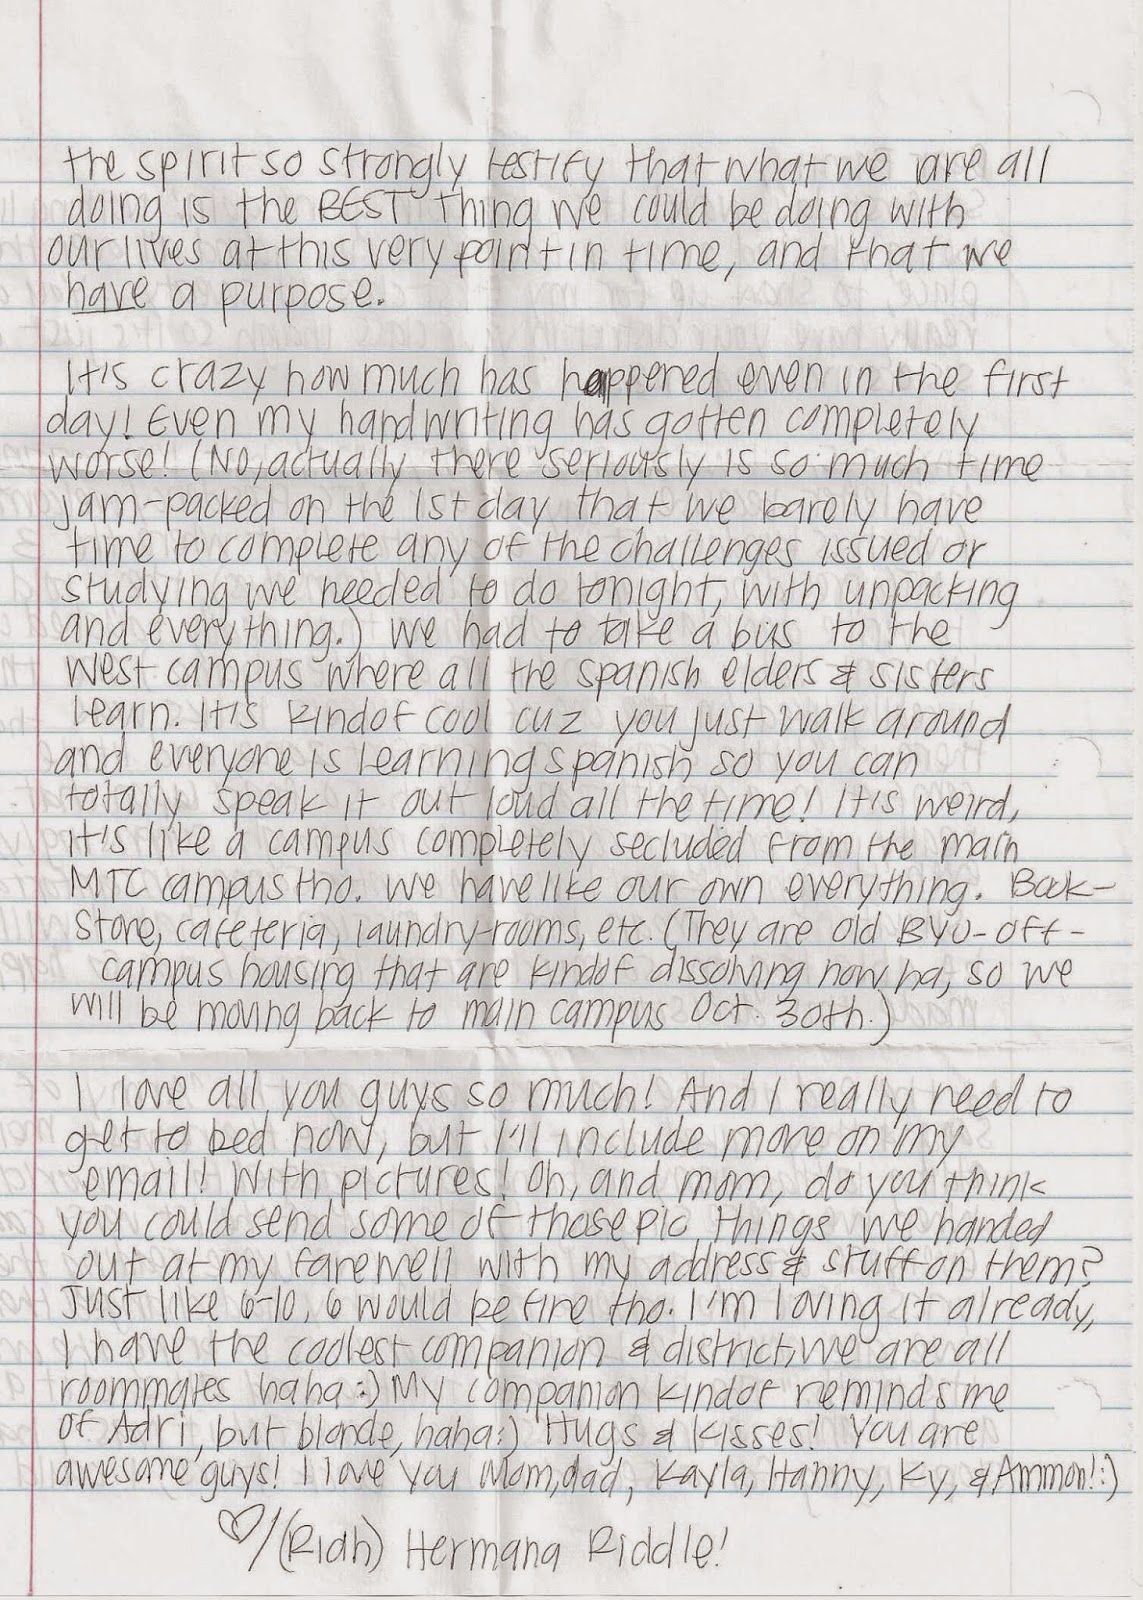 the spirit so strongly testify that what we are all
doing is the BEST thing we could be doing with
our lives at this very point in time, and that we
have a purpose.
It's crazy how much has happened even in the first
day! Even my handwriting has gotten completely
worse! (No, actually there seriously is so much time
jam-packed on the 1st day that we barely have
time to complete any of the challenges issued or
studying we needed to do tonight, with unpacking
and everything.) We had to take a bus to the
west campus where all the spanish elders & sisters
learn. It's kindof cool cuz you just walk around
and everyone is learning spanish so you can
totally speak it out loud all the time! It's weird,
it's like a campus completely secluded from the main
MTC campus tho. We have like our own everything. Book-
store, cafeteria, laundry-rooms, etc. (They are old BYU-off-
campus housing that are kindof dissolving now ha, so we
will be moving back to main campus Oct. 30th.)
I love all you guys so much! And I really need to
get to bed now, but I'll include more on my
email! With pictures! Oh, and mom, do you think
you could send some of those pic things we handed
out at my farewell with my address & stuff on them?
Just like 6-10, 6 would be fine tho. I'm loving it already,
I have the coolest companion & district, we are all
roommates haha :) My companion kindof reminds me
of Adri, but blonde, haha :) Hugs & Kisses! You are
awesome guys! I love you Mom, dad, Kayla, Hanny, Ky, & Ammon! :)
♡/(Riah) Hermana Riddle!